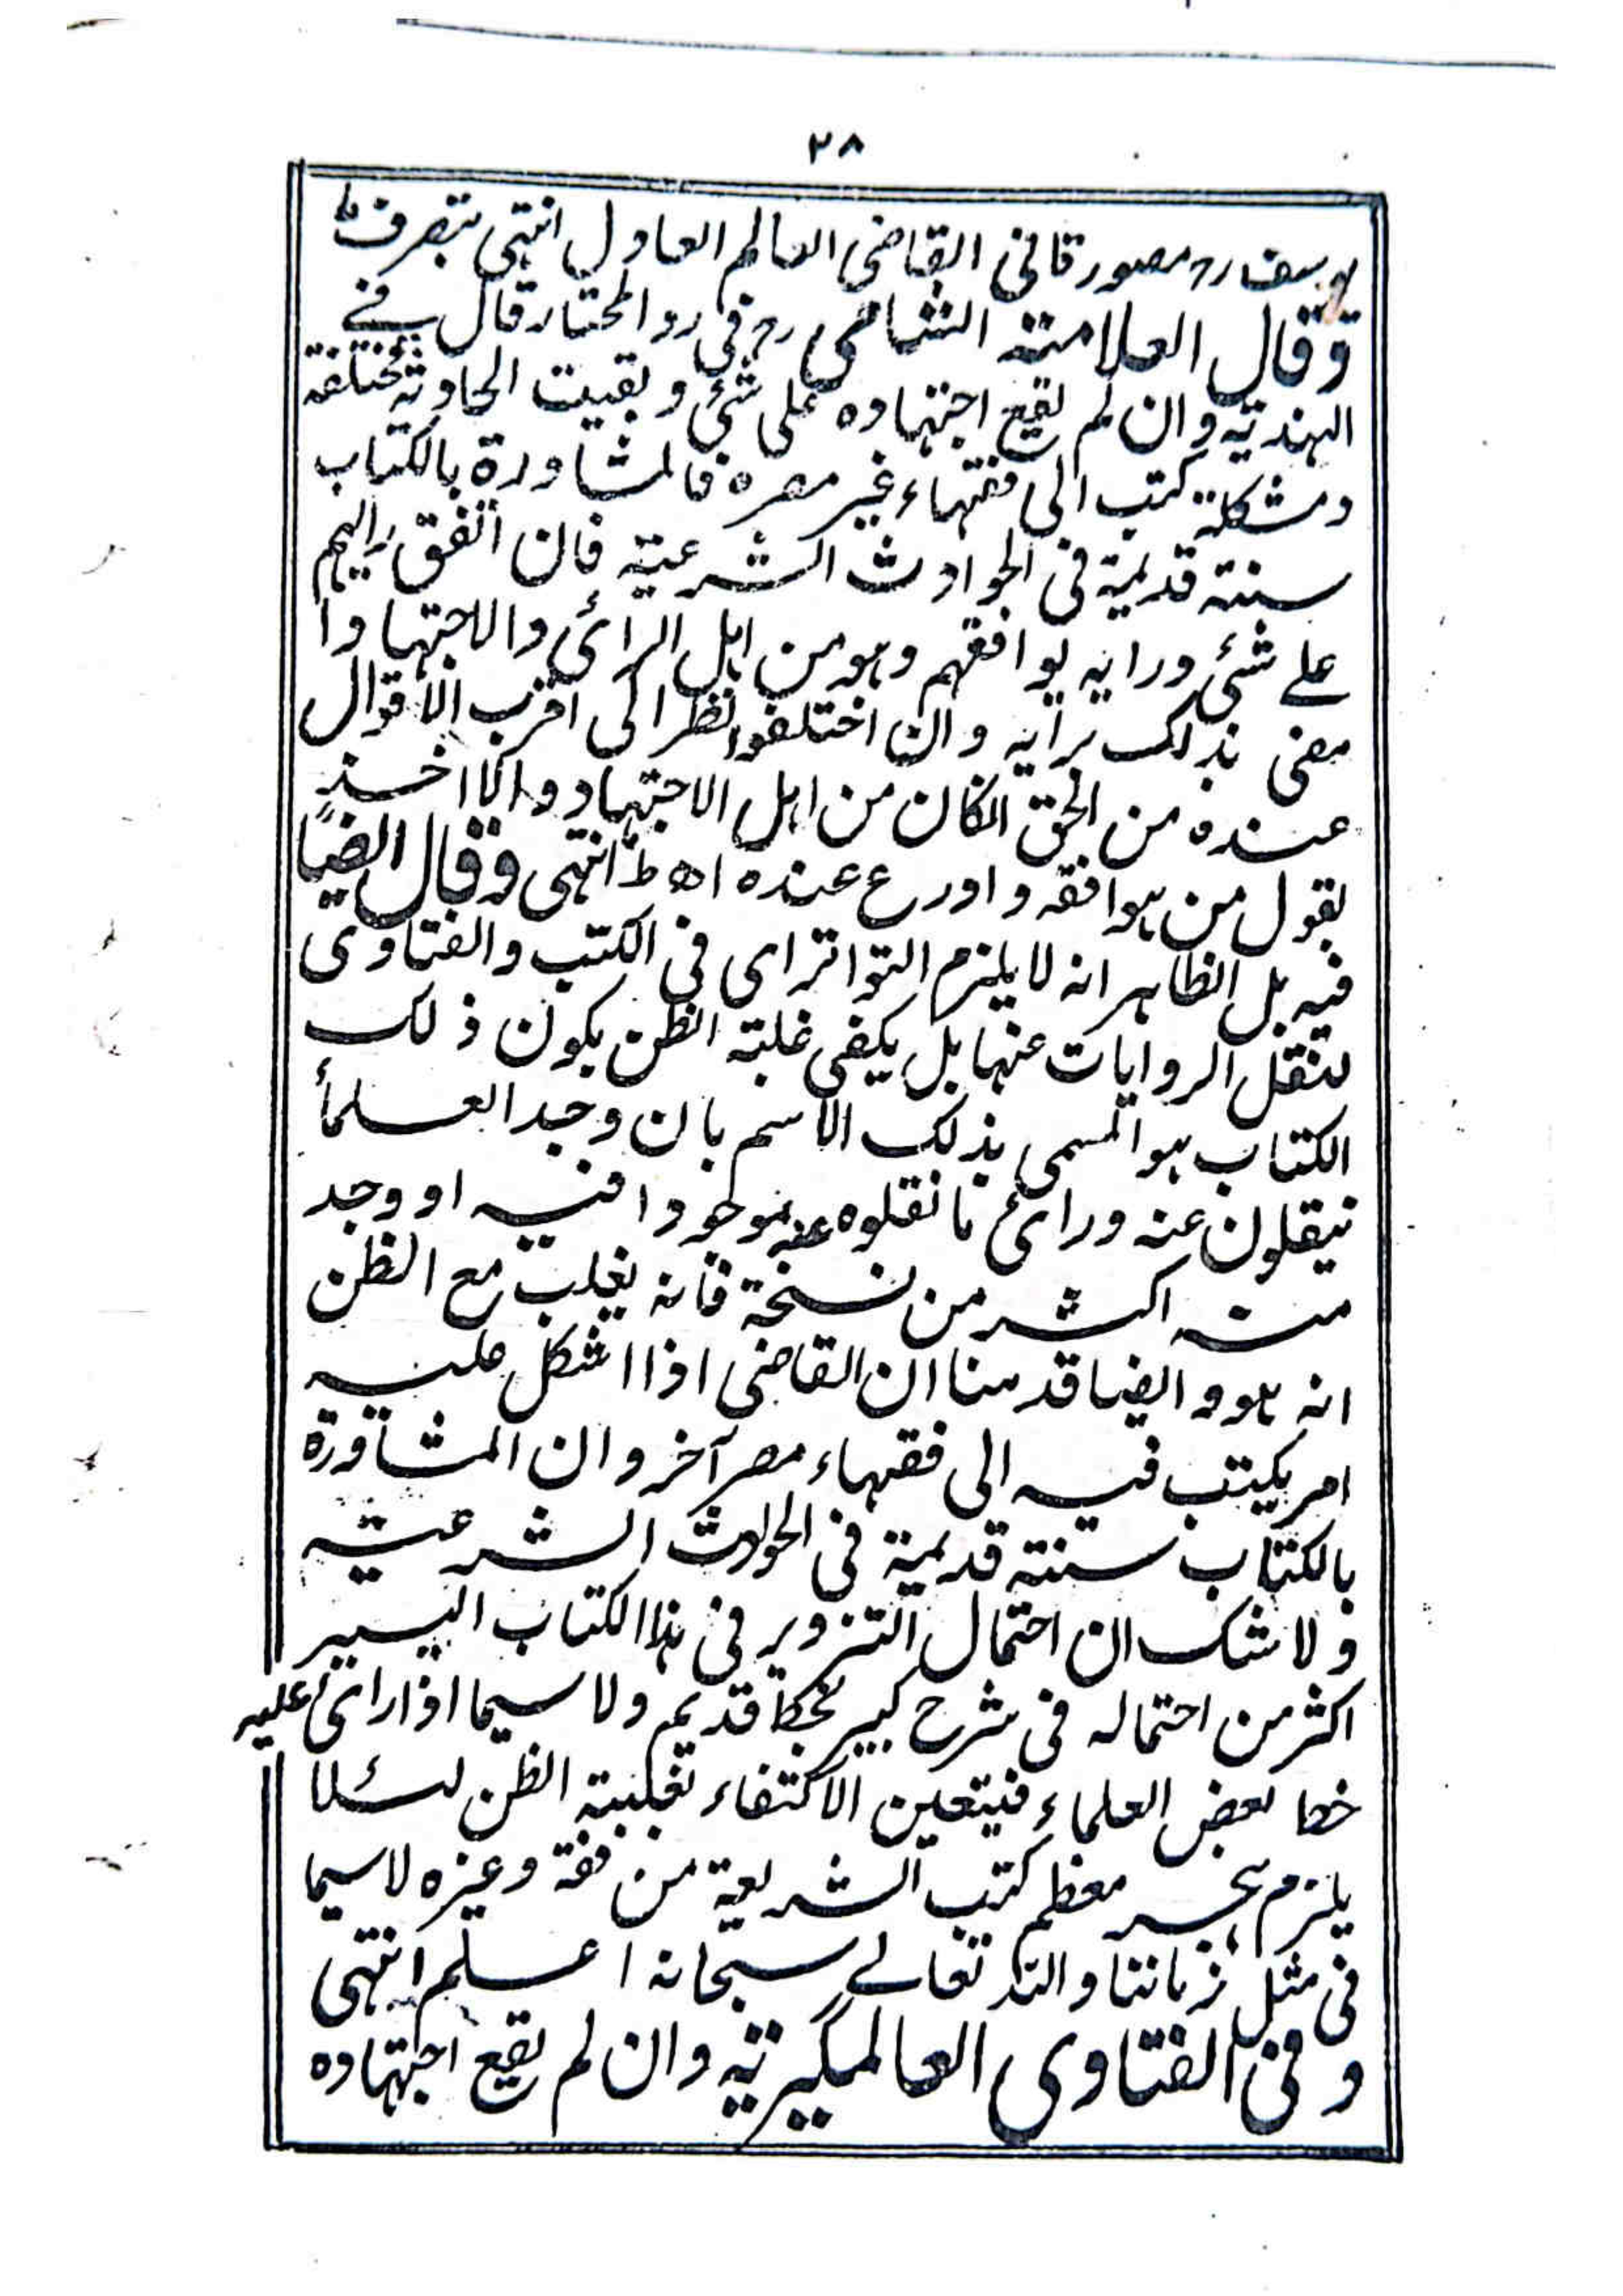 ٢٨
يوسف رح مصور قانى القاضى العالم العادل انتهى بتصرف ما
وقال العلامته الشامى رح فى رد المحتار قال فے
الهنديته وان لم يقع اجتهاده على شئ و بقيت الحادثة مختلفة
ومشكلة كتب الى فقهاء غير مصره فالمشاورة بالكتاب
سنته قديمة فى الحوادث الشرعيته فان اتفق رايهم
علے شئ ورايه يوافقهم وهو من اهل الرأى والاجتهاد ا
مضى بذلك برايه وان اختلفوا نظر الى اقرب الاقوال
عنده من الحق انكان من اهل الاجتهاد والا اخذ
بقول من هو افقه و اورع عنده اه ط انتهى وقال ايضًا
فيه بل الظاهر انه لا يلزم التواتر اى فى الكتب والفتاوى
لنقل الروايات عنها بل يكفى غلبته الظن بكون ذلك
الكتاب هو المسمى بذلك الاسم بان وجد العلمأ
ينقلون عنه وراى ما نقلوه عنه موجودا فيه او وجد
منه اكثر من نسخة فانه يغلب مع الظن
انه هو و ايضا قدمنا ان القاضى اذا اشكل عليه
امر يكتب فيه الى فقهاء مصر آخر و ان المشاورة
بالكتاب سنته قديمة فى الحوادث الشرعيته
ولا شك ان احتمال التزوير فى هذا الكتاب اليسير
اكثر من احتماله فى شرح كبير بخط قديم ولا سيما اذا راى عليه
خط بعض العلماء فيتعين الاكتفاء بغلبته الظن لئلا
يلزم هجر معظم كتب الشريعة من فقه وغيره لاسيما
فى مثل زماننا والله تعالے سبحانه اعلم انتهى
وفى الفتاوى العالمگيريته وان لم يقع اجتهاده